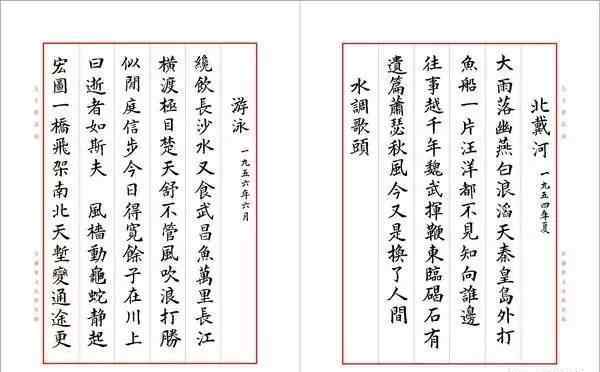 北戴河 一九五四年夏
大雨落幽燕白浪滔天秦皇島外打
魚船一片汪洋都不見知向誰邊
往事越千年魏武揮鞭東臨碣石有
遺篇蕭瑟秋風今又是換了人間
水調歌頭
游泳 一九五六年六月
纔飲長沙水又食武昌魚萬里長江
橫渡極目楚天舒不管風吹浪打勝
似閒庭信步今日得寬餘子在川上
曰逝者如斯夫 風檣動龜蛇静起
宏圖一橋飛架南北天塹變通途更